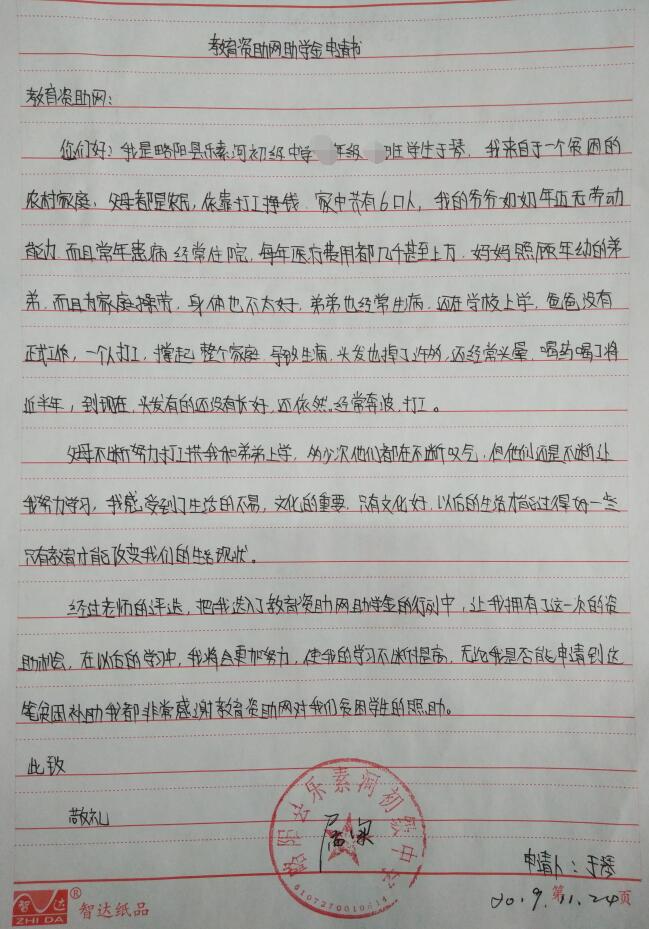 教育资助网助学金申请书
教育资助网：
您们好！我是略阳县乐素河初级中学 年级 班学生于琴，我来自于一个贫困的
农村家庭，父母都是农民，依靠打工挣钱，家中共有6口人，我的爷爷奶奶年迈无劳动
能力，而且常年患病，经常住院，每年医疗费用都几千甚至上万，妈妈照顾年幼的弟
弟，而且为家庭操劳，身体也不太好，弟弟也经常生病，还在学校上学，爸爸没有
正式工作，一个人打工，撑起整个家庭，导致生病，头发也掉了许多，还经常头晕，喝药喝了将
近半年，到现在，头发有的还没有长好，还依然经常奔波，打工。
父母不断努力打工供我和弟弟上学，多少次他们都在不断叹气，但他们还是不断让
我努力学习，我感受到了生活的不易，文化的重要，只有文化好，以后的生活才能过得好一些
只有教育才能改变我们的生活现状。
经过老师的评选，把我选入了教育资助网助学金的行列中，让我拥有了这一次的资
助机会，在以后的学习中，我将会更加努力，使我的学习不断提高，无论我是否能申请到这
笔贫困补助我都非常感谢教育资助网对我们贫困学生的照助。
此致
敬礼
略阳县乐素河初级中学
属实
6107270010814
申请人：于琴
20.9.11.24
第 页
智达
ZHI DA
®
智达纸品